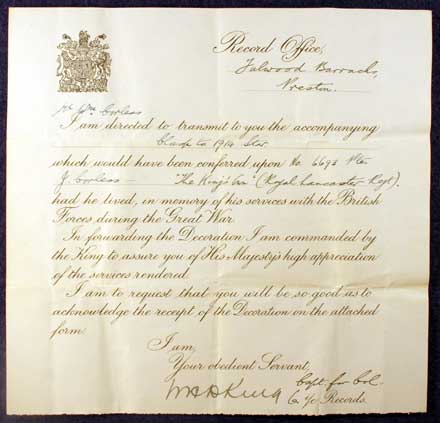 Record Office,
Fulwood Barracks,
Preston.
Corless
I am directed to transmit to you the accompanying
Clasp to 1914 Star
which would have been conferred upon No. 6693 Pte
J. Corless "The King's Own" (Royal Lancaster Regt).
had he lived, in memory of his services with the British
Forces during the Great War.
In forwarding the Decoration I am commanded by
the King to assure you of His Majesty's high appreciation
of the services rendered.
I am to request that you will be so good as to
acknowledge the receipt of the Decoration on the attached
form.
I am,
Your obedient Servant,
King Capt for Col.
i/c Records.